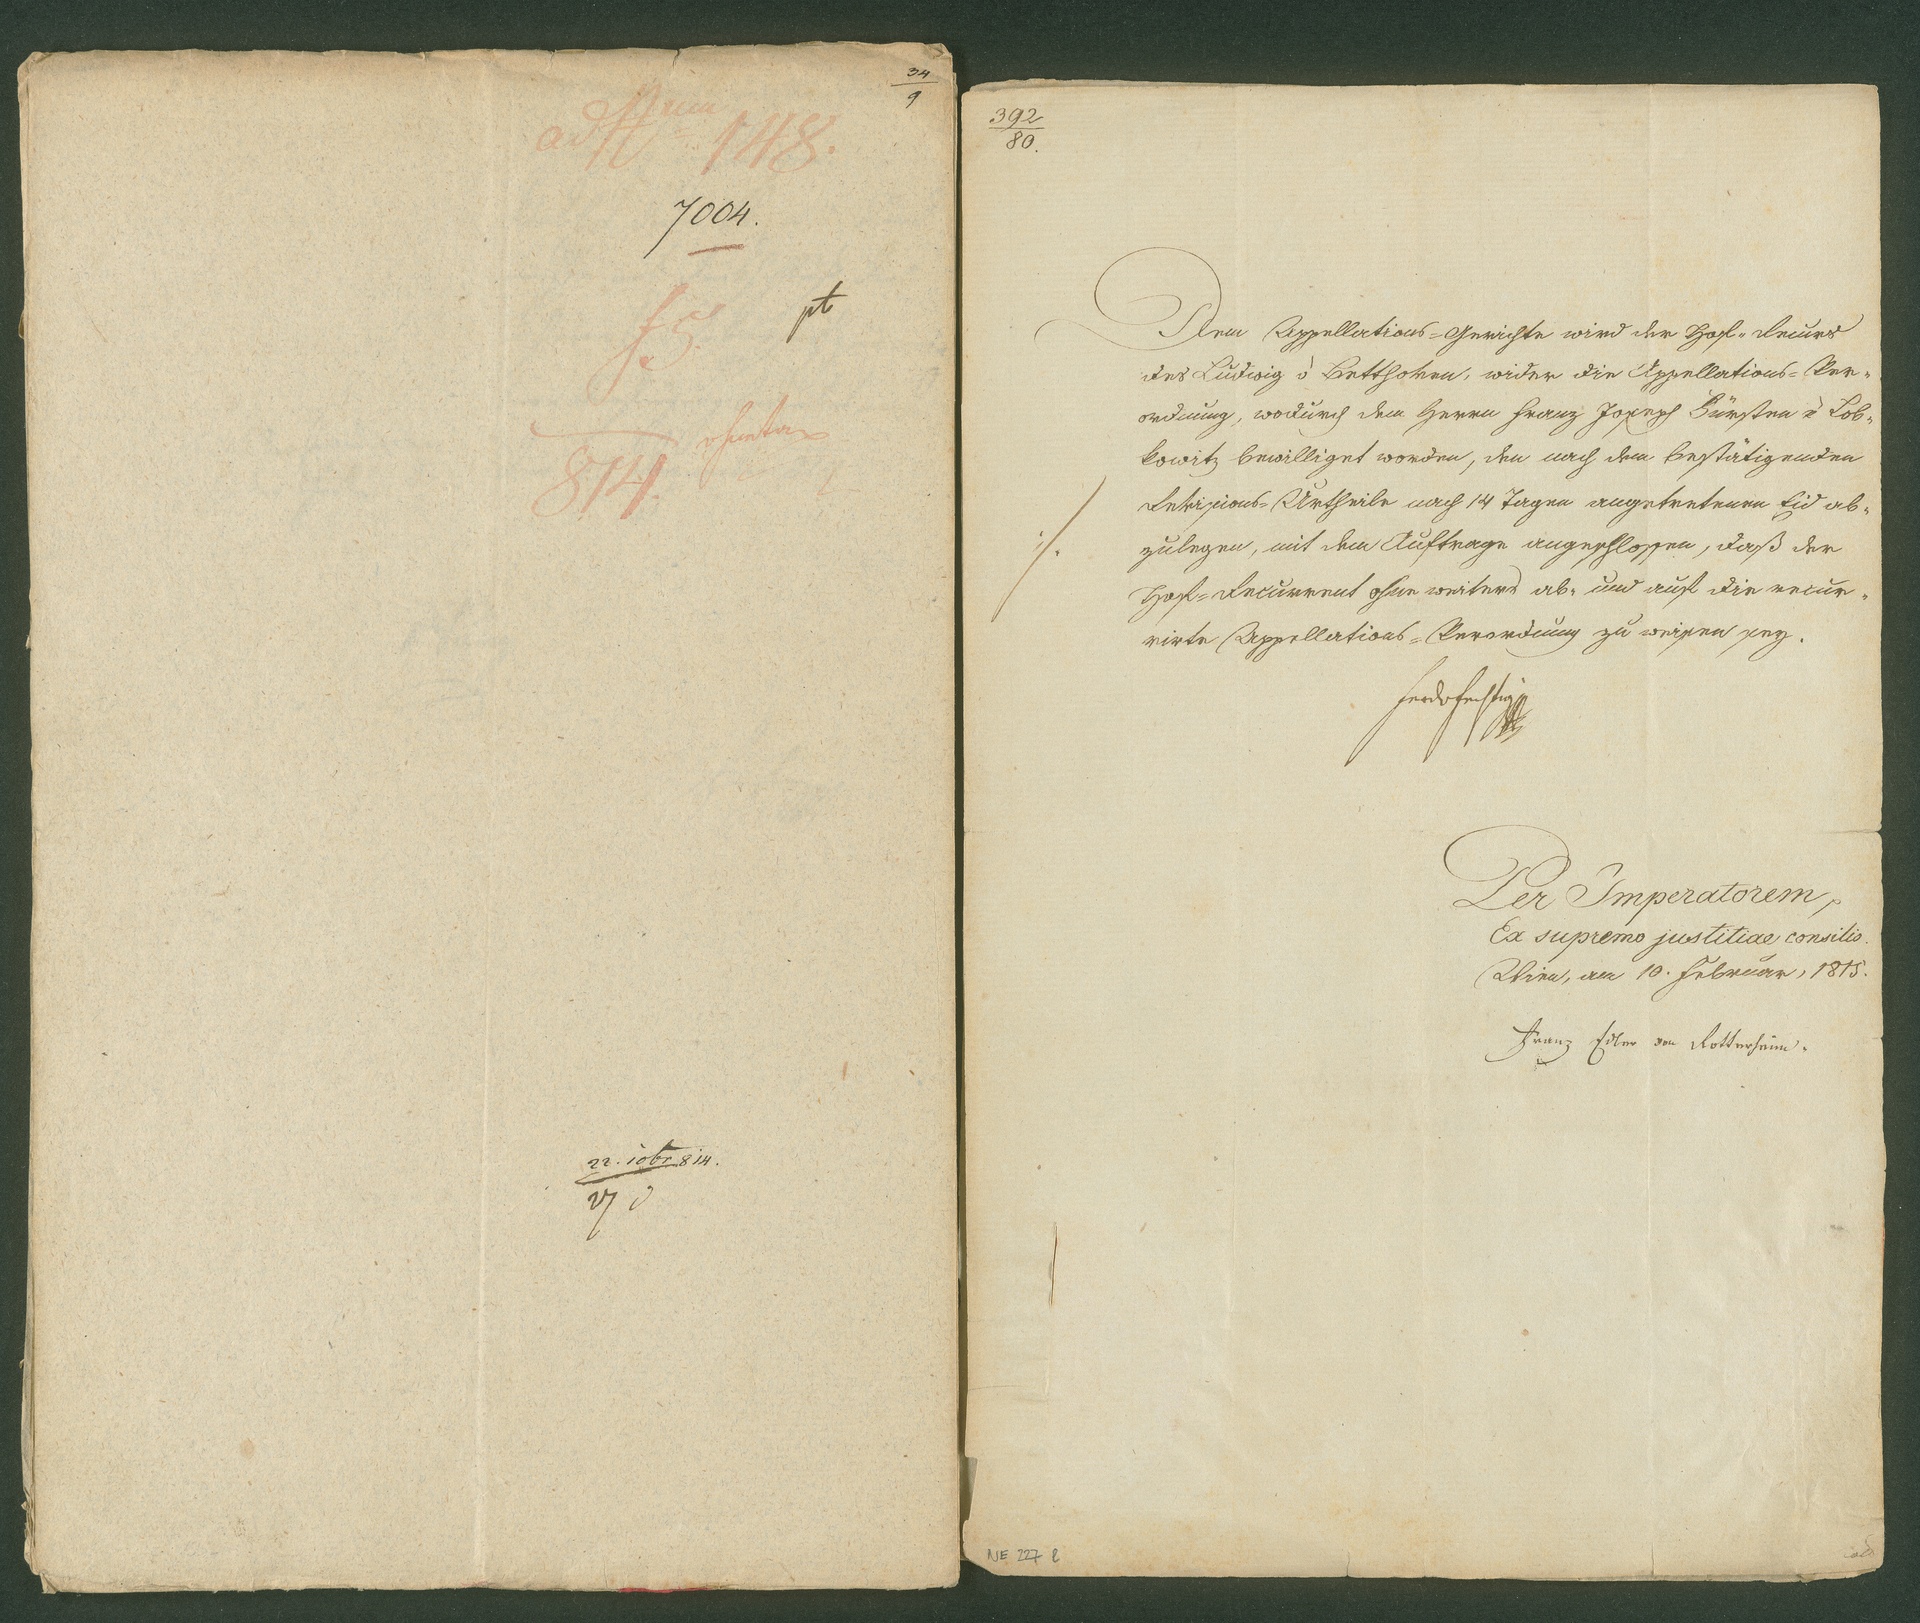 34
9
148.
7004.
f. 5.
pt
814.
22. 10br. 814.
27
392
80.
Dem Appellations-Gerichte wird der Hof-Recurs
des Ludwig v Betthoven, wider die Appellations-Ver-
ordnung, wodurch dem Herrn Franz Joseph Fürsten v Lob-
kowitz bewilliget worden, den nach dem bestätigenden
Revisions-Urtheile nach 14 Tagen angetretenen Eid ab-
zulegen, mit dem Auftrage angeschlossen, daß der
Hof-Recurrent ohne weiters ab- und auf die recur-
rirte Appellations-Verordnung zu weisen sey.
./.
Per Imperatorem,
Ex supremo justitiae consilio.
Wien, am 10. Februar, 1815.
Franz Edler von Rotterheim.
NE 227 l